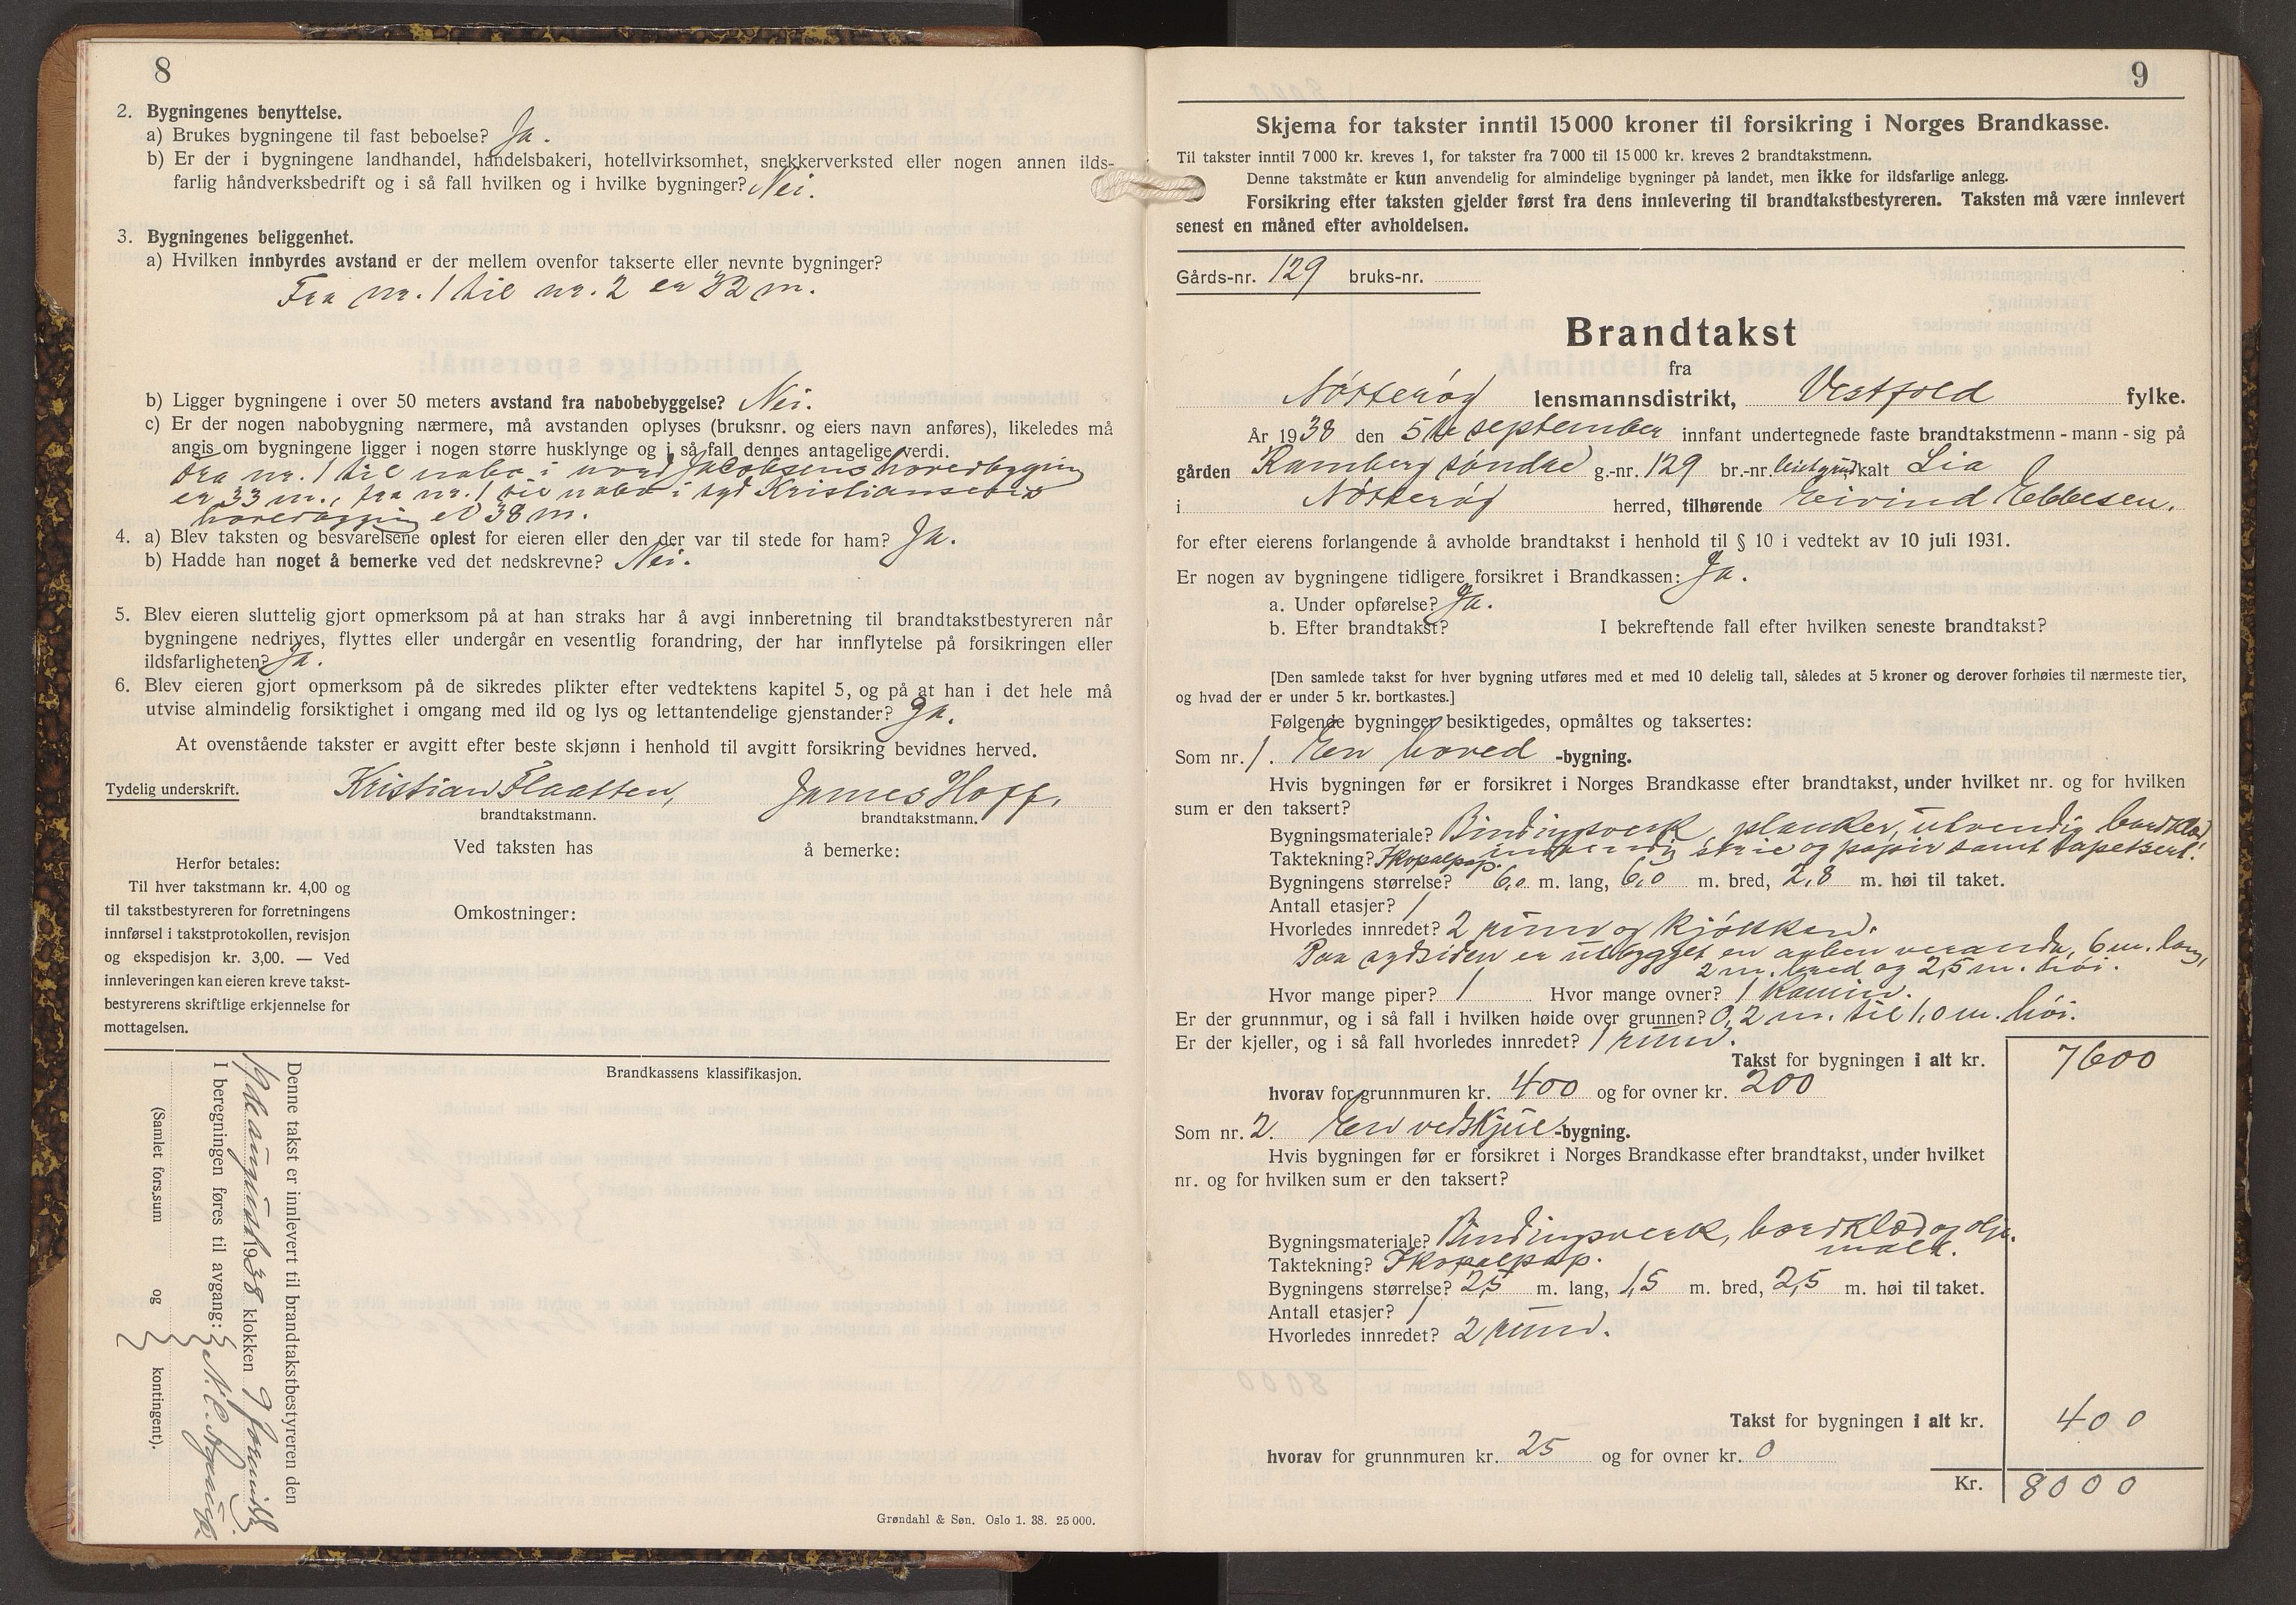 8
2. Bygningenes benyttelse.
a) Brukes bygningene til fast beboelse? Ja.
b) Er der i bygningene landhandel, handelsbakeri, hotellvirksomhet, snekkerverksted eller nogen annen ilds-
farlig håndverksbedrift og i så fall hvilken og i hvilke bygninger? Nei.
3. Bygningenes beliggenhet.
a) Hvilken innbyrdes avstand er der mellem ovenfor takserte eller nevnte bygninger?
Fra nr. 1 til nr. 2 er 32 m.
b) Ligger bygningene i over 50 meters avstand fra nabobebyggelse? Nei.
c) Er der nogen nabobygning nærmere, må avstanden oplyses (bruksnr. og eiers navn anføres), likeledes må
angis om bygningene ligger i nogen større husklynge og i så fall dennes antagelige verdi.
Fra nr. 1 til nabo i nord Jacobsens hovedbygning
er 33 m., fra nr. 1 til nabo i syd Kristiansens
hovedbygning er 38 m.
4. a) Blev taksten og besvarelsene oplest for eieren eller den der var til stede for ham? Ja.
b) Hadde han noget å bemerke ved det nedskrevne? Nei.
5. Blev eieren sluttelig gjort opmerksom på at han straks har å avgi innberetning til brandtakstbestyreren når
bygningene nedrives, flyttes eller undergår en vesentlig forandring, der har innflytelse på forsikringen eller
ildsfarligheten? Ja.
6. Blev eieren gjort opmerksom på de sikredes plikter efter vedtektens kapitel 5, og på at han i det hele må
utvise almindelig forsiktighet i omgang med ild og lys og lettantendelige gjenstander? Ja.
At ovenstående takster er avgitt efter beste skjønn i henhold til avgitt forsikring bevidnes herved.
Tydelig underskrift. Kristian Flaatten, James Hoff,
brandtakstmann. brandtakstmann.
Ved taksten has å bemerke:
Herfor betales:
Til hver takstmann kr. 4,00 og
til takstbestyreren for forretningens
innførsel i takstprotokollen, revisjon
og ekspedisjon kr. 3,00. — Ved
innleveringen kan eieren kreve takst-
bestyrerens skriftlige erkjennelse for
mottagelsen.
Omkostninger:
Brandkassens klassifikasjon.
Denne takst er innlevert til brandtakstbestyreren den
august 1938 klokken 9 formidd.
I beregningen føres til avgang:
(Samlet fors.sum og kontingent).
Grøndahl & Søn. Oslo 1. 38. 25 000.
9
Skjema for takster inntil 15 000 kroner til forsikring i Norges Brandkasse.
Til takster inntil 7 000 kr. kreves 1, for takster fra 7 000 til 15 000 kr. kreves 2 brandtakstmenn.
Denne takstmåte er kun anvendelig for almindelige bygninger på landet, men ikke for ildsfarlige anlegg.
Forsikring efter taksten gjelder først fra dens innlevering til brandtakstbestyreren. Taksten må være innlevert
senest en måned efter avholdelsen.
Gårds-nr. 129 bruks-nr.
Brandtakst
fra
Nøtterøy lensmannsdistrikt, Vestfold fylke.
År 1938 den 5te september innfant undertegnede faste brandtakstmenn - mann - sig på
gården Ramberg søndre g.-nr. 129 br.-nr. leiet grund kalt Lia
i Nøtterøy herred, tilhørende Eivind Ebbesen.
for efter eierens forlangende å avholde brandtakst i henhold til § 10 i vedtekt av 10 juli 1931.
Er nogen av bygningene tidligere forsikret i Brandkassen: Ja.
a. Under opførelse? Ja.
b. Efter brandtakst? I bekreftende fall efter hvilken seneste brandtakst?
[Den samlede takst for hver bygning utføres med et med 10 delelig tall, således at 5 kroner og derover forhøies til nærmeste tier,
og hvad der er under 5 kr. bortkastes.]
Følgende bygninger besiktigedes, opmåltes og taksertes:
Som nr. 1. En hoved -bygning.
Hvis bygningen før er forsikret i Norges Brandkasse efter brandtakst, under hvilket nr. og for hvilken
sum er den taksert?
Bygningsmateriale? Bindingsverk, planker, utvendig bordklæd
Taktekning? Ikopalpap. innvendig strie og papir samt tapetsert.
Bygningens størrelse? 6,0 m. lang, 6,0 m. bred, 2,8 m. høi til taket.
Antall etasjer? 1
Hvorledes innredet? 2 rum og kjøkken.
Paa sydsiden er utbygget en aaben veranda, 6 m. lang,
2 m. bred og 2,5 m. høi.
Hvor mange piper? 1 Hvor mange ovner? 1 kamin.
Er der grunnmur, og i så fall i hvilken høide over grunnen? 0,2 m. til 1,0 m. høi.
Er der kjeller, og i så fall hvorledes innredet? 1 rum.
Takst for bygningen i alt kr. 7600
hvorav for grunnmuren kr. 400 og for ovner kr. 200
Som nr. 2. En vedskjul -bygning.
Hvis bygningen før er forsikret i Norges Brandkasse efter brandtakst, under hvilket
nr. og for hvilken sum er den taksert?
Bygningsmateriale? Bindingsverk, bordklæd og olje.
malt.
Taktekning? Ikopalpap.
Bygningens størrelse? 2,5 m. lang, 1,5 m. bred, 2,5 m. høi til taket.
Antall etasjer? 1
Hvorledes innredet? 2 rum.
Takst for bygningen i alt kr. 400
hvorav for grunnmuren kr. 25 og for ovner kr. 0
Kr. 8000